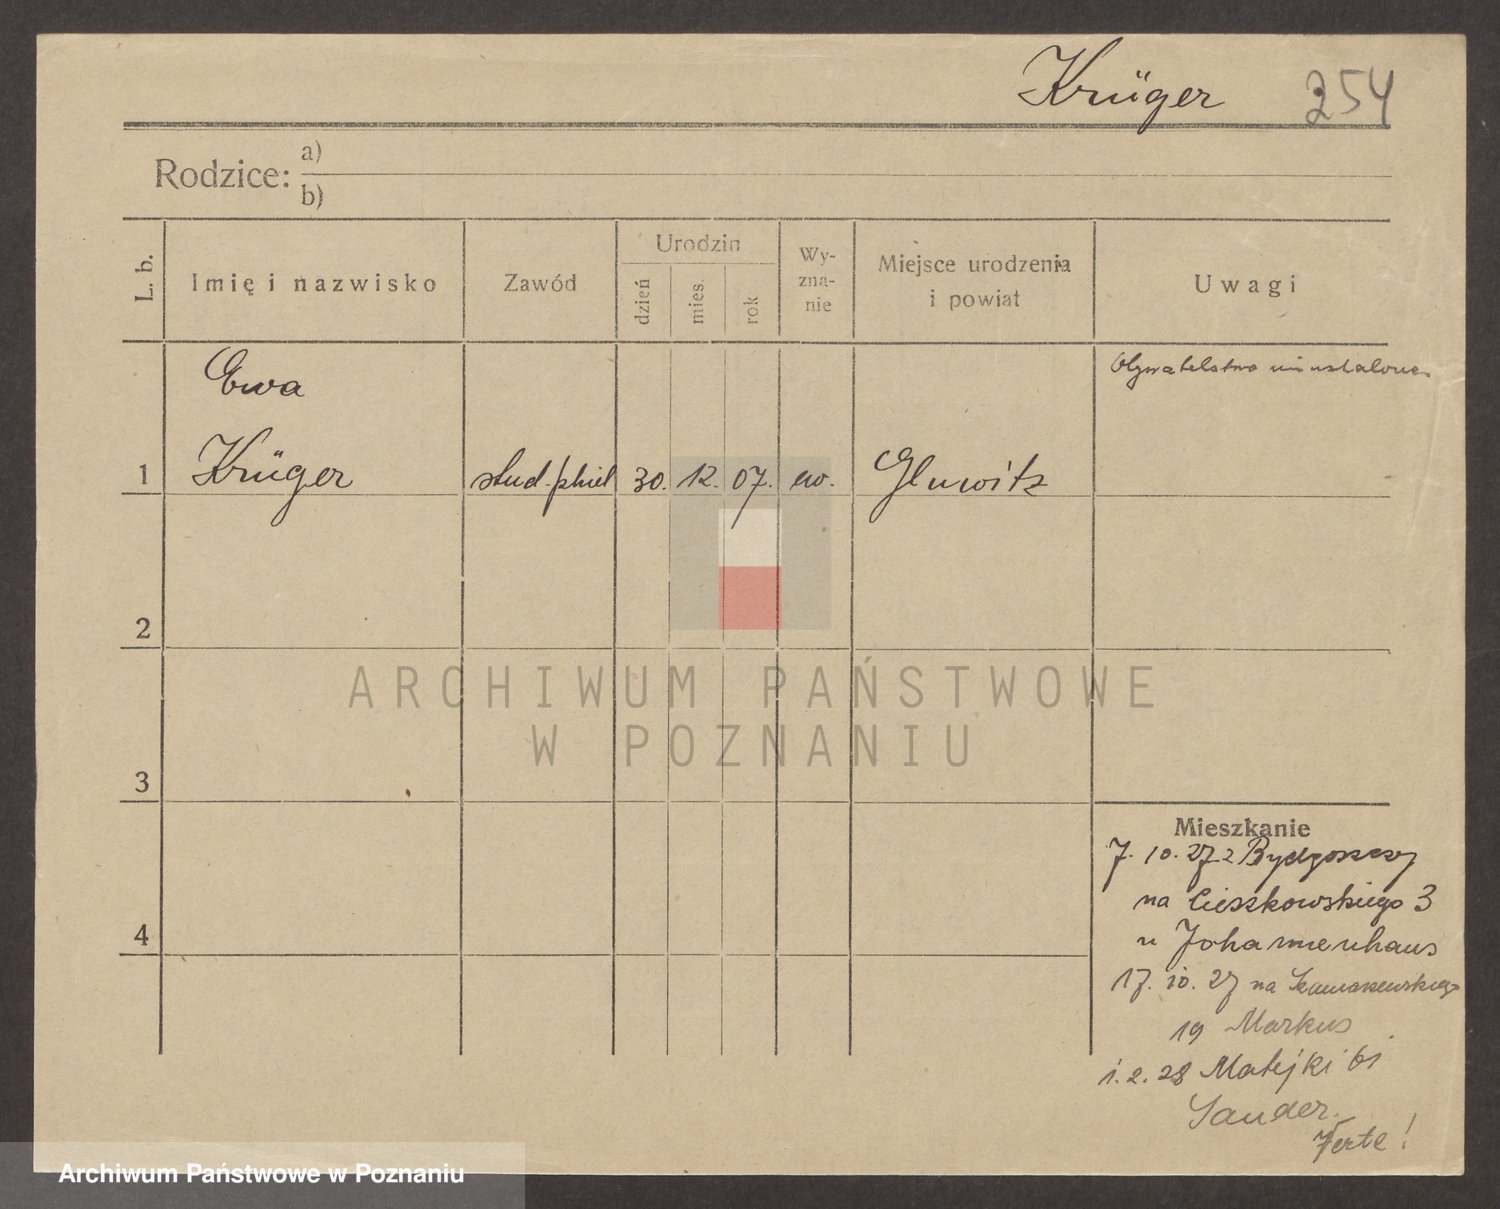 Krüger 254
Rodzice: a)
b)
L. b.
Imię i nazwisko
Zawód
Urodzin
dzień
mies.
rok
Wy-
zna-
nie
Miejsce urodzenia
i powiat
Uwagi
Ewa
Krüger
1
stud. phil
30. 12. 07.
ew.
Gluwitz
Obywatelstwo nieustalone.
2
3
4
Mieszkanie
7. 10. 27 z Bydgoszczy
na Cieszkowskiego 3
u Johannenhaus
17. 10. 27 na
19 Markus
1. 2. 28 Matejki 61
Sander.
Verte!
ARCHIWUM PAŃSTWOWE
W POZNANIU
Archiwum Państwowe w Poznaniu